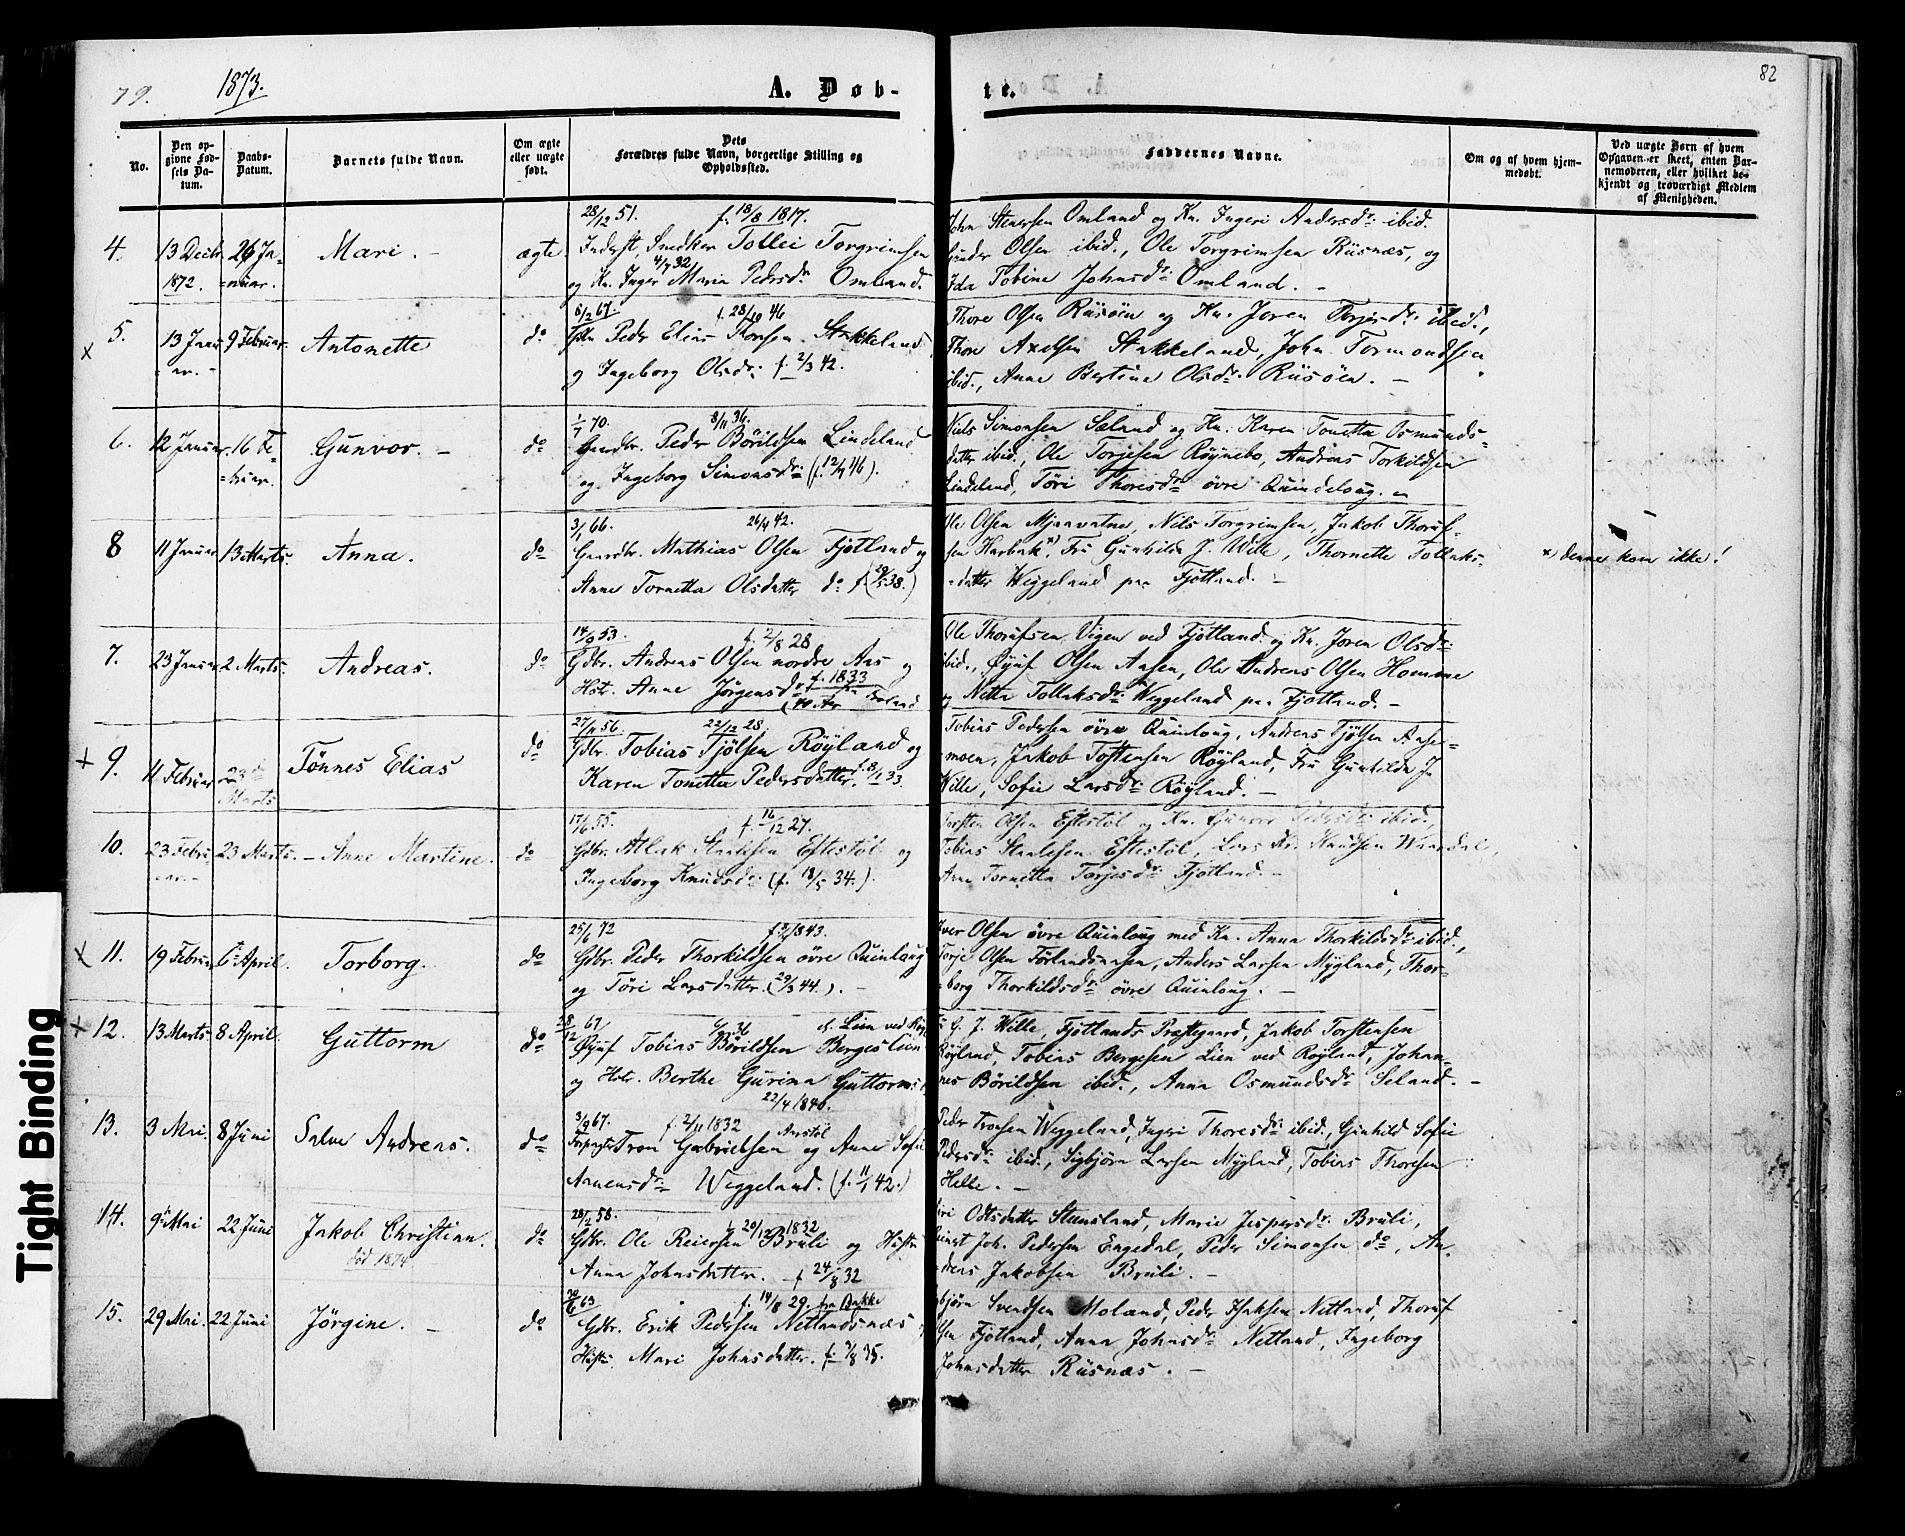 79.
1873.
A. Døb-
te.
82
No.
Den opgivne Fødsels Datum.
Daabs-Datum.
Barnets fulde Navn.
Om ægte eller uægte født.
Dets Forældres fulde Navn, borgerlige Stilling og Opholdssted.
Faddernes Navne.
Om og af hvem hjemmedøbt.
Ved uægte Børn af hvem Opgaven er skeet, enten Barnemoderen, eller hvilket bekjendt og troværdigt Medlem af Menigheden.
28/12 51. f. 18/8 1817.
4. 13 Decbr 1872. 26 Januar. Mari. - ægte.
Inderst, Snedker Tollei Torgrimsen
4/7 32
og Kn. Inger Maria Pedersdr Omland.
John Stenersen Omland og Kn. Ingeri Andersdr ibid.
Gunder Olsen ibid., Ole Torgrimsen Riisnæs, og
Ida Tobine Johnsdr Omland. -
x 5. 13 Januar. - 9 Februar. Antonette do
6/2 67. f. 28/10 46
Peder Elias Thorsen Stakkeland
og Ingeborg Olsdr f. 2/3 42.
Thore Olsen Riisøen og Kn. Joren Torjesdr ibid.,
Thore Axelsen Stakkeland, John Tormondsen
ibid., Anne Bertine Olsdr Riisøen. -
6. 12 Januar. 16 Februar. Gunvor. - do
1/7 70. 8/11 36.
Gaardbr. Peder Børildsen Lindeland
og Ingeborg Simonsdr (f. 12/4 46).
Niels Simonsen Sæland og Kn. Karen Tonetta Osmunds-
datter ibid., Ole Torjesen Røynebo, Andreas Torkildsen
Lindeland, Tøri Thoresdr øvre Quindloug.
8 11 Januar 13 Marts. Anna. do
3/1 66. 26/4 42.
Gaardbr. Mathias Olsen Fjotland og
Anne Tornetta Olsdatter do f (29/5 38.)
Ole Olsen Mjaavatne, Nils Torgrimsen, Jakob Thoruf-
sen Harbak x), Fru Gunhilda J. Wille, Thornette Tollaks-
datter Weggeland paa Fjotland. -
x denne kom ikke!
7. 23 Januar 2 Marts. Andreas. do
14/9 53. f. 2/8 28
Gdbr. Andreas Olsen nordre Aas og
Hst. Anne Jørgensdr f. 1833
(40 Aar
Ole Thorufsen Vigen ved Fjotland og Kn. Joren Olsdr
ibid., Øyuf Olsen Aasen, Ole Andreas Olsen Homme
og Netta Tollaksdr Weggeland paa Fjotland. -
+ 9. 11 Februar 23de Marts Tønnes Elias do
27/11 56. 22/12 28.
Gdbr. Tobias Tjølsen Røyland og
Karen Tonetta Pedersdatter. f. 8/1 33.
Tobias Pedersen øvre Quinloug, Andreas Tjølsen Aase-
moen, Jakob Tostensen Røyland, Fru Gunhilda J.
Wille, Sofie Larsdr Røyland. -
10. 23 Februar. - 23 Marts. - Anne Martine. do
17/6 55. f. 16/12 27.
Gdbr. Atlak Staalesen Eftestøl og
Ingeborg Knudsdr (f. 18/5 34.).
Torsten Olsen Eftestøl og Kn. Gunvor Pedersdr ibid.,
Tobias Staalesen Eftestøl, Lars Kr. Knudsen Waardal,
Anne Tornetta Torjesdr Fjotland. -
x 11. 19 Februar 6te April. Torborg. do
25/6 72 1843.
Gdbr. Peder Thorkildsen øvre Quinlaug
og Tøri Larsdatter. (29/3 44.). -
Iver Olsen øvre Quinloug med Kn. Anna Thorkildsdr ibid.,
Torje Olsen Førlandsaasen, Anders Larsen Mygland, Thor-
borg Thorkildsdr øvre Quinloug. -
x 12. 13 Marts 8 April. Guttorm do
28/12 67 36 Lien ved Røyl
Øyuf Tobias Børildsen Bergeslien
og Hstr. Berthe Gurina Guttorms
22/4 1840.
G. J. Wille, Fjotlands Præstegaard, Jakob Torstensen
Røyland, Tobias Bergesen Lien ved Røyland, Johan-
nes Børildsen ibid., Anna Osmundsdr Seland. -
13. 3 Mai. 8 Juni Salve Andreas. do
3/9 67. f. 2/11 1832 Aarstøl
Forpagter Tron Gabrielsen og Anne Sofie
Aanensdr Weggeland. (f. 11/1 42.)
Peder Tronsen Weggeland, Ingeri Thoresdr ibid., Gunhild Sofie
Pedersdr ibid., Sigbjørn Larsen Mygland, Tobias Thoresen
Helle. -
14. 9de Mai 22 Juni Jakob Christian. do
død 1874
28/2 58. f. 20/12 1832
Gdbr. Ole Reiersen Bruli og Hustru
Anna Johnsdatter. - f 24/8 32
Odtsdatter Steensland, Marie Jespersdr Bruli,
Joh. Pedersen Engedal, Peder Simonsen do, An-
dreas Jakobsen Bruli. -
15. 29 Mai. 22 Juni Jørgine. - do
20/6 63 f. 14/8 29. fra Bakke
Gdbr. Erik Pedersen Netlandsnæs
Hustr. Mari Johnsdatter. f. 7/8 35.
Svendsen Moland, Peder Isaksen Netland, Thoruf
Fjotland, Anna Johnsdr Netland, Ingeborg
Johnsdatter Riisnæs. -
Tight Binding